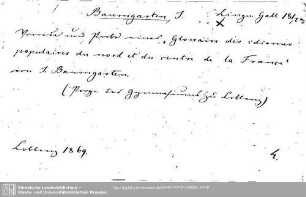 Baumgarten J. Lingu. Gall 18/
x
Vorrede und Probe eines „Glossaire des idiomes
populaires du nord et du centre de la France"
von J. Baumgarten.
(Progr. des Gymnasiums zu Coblenz)
Coblenz 1869. 4.
Sächsische Landesbibliothek –
Staats- und Universitätsbibliothek Dresden